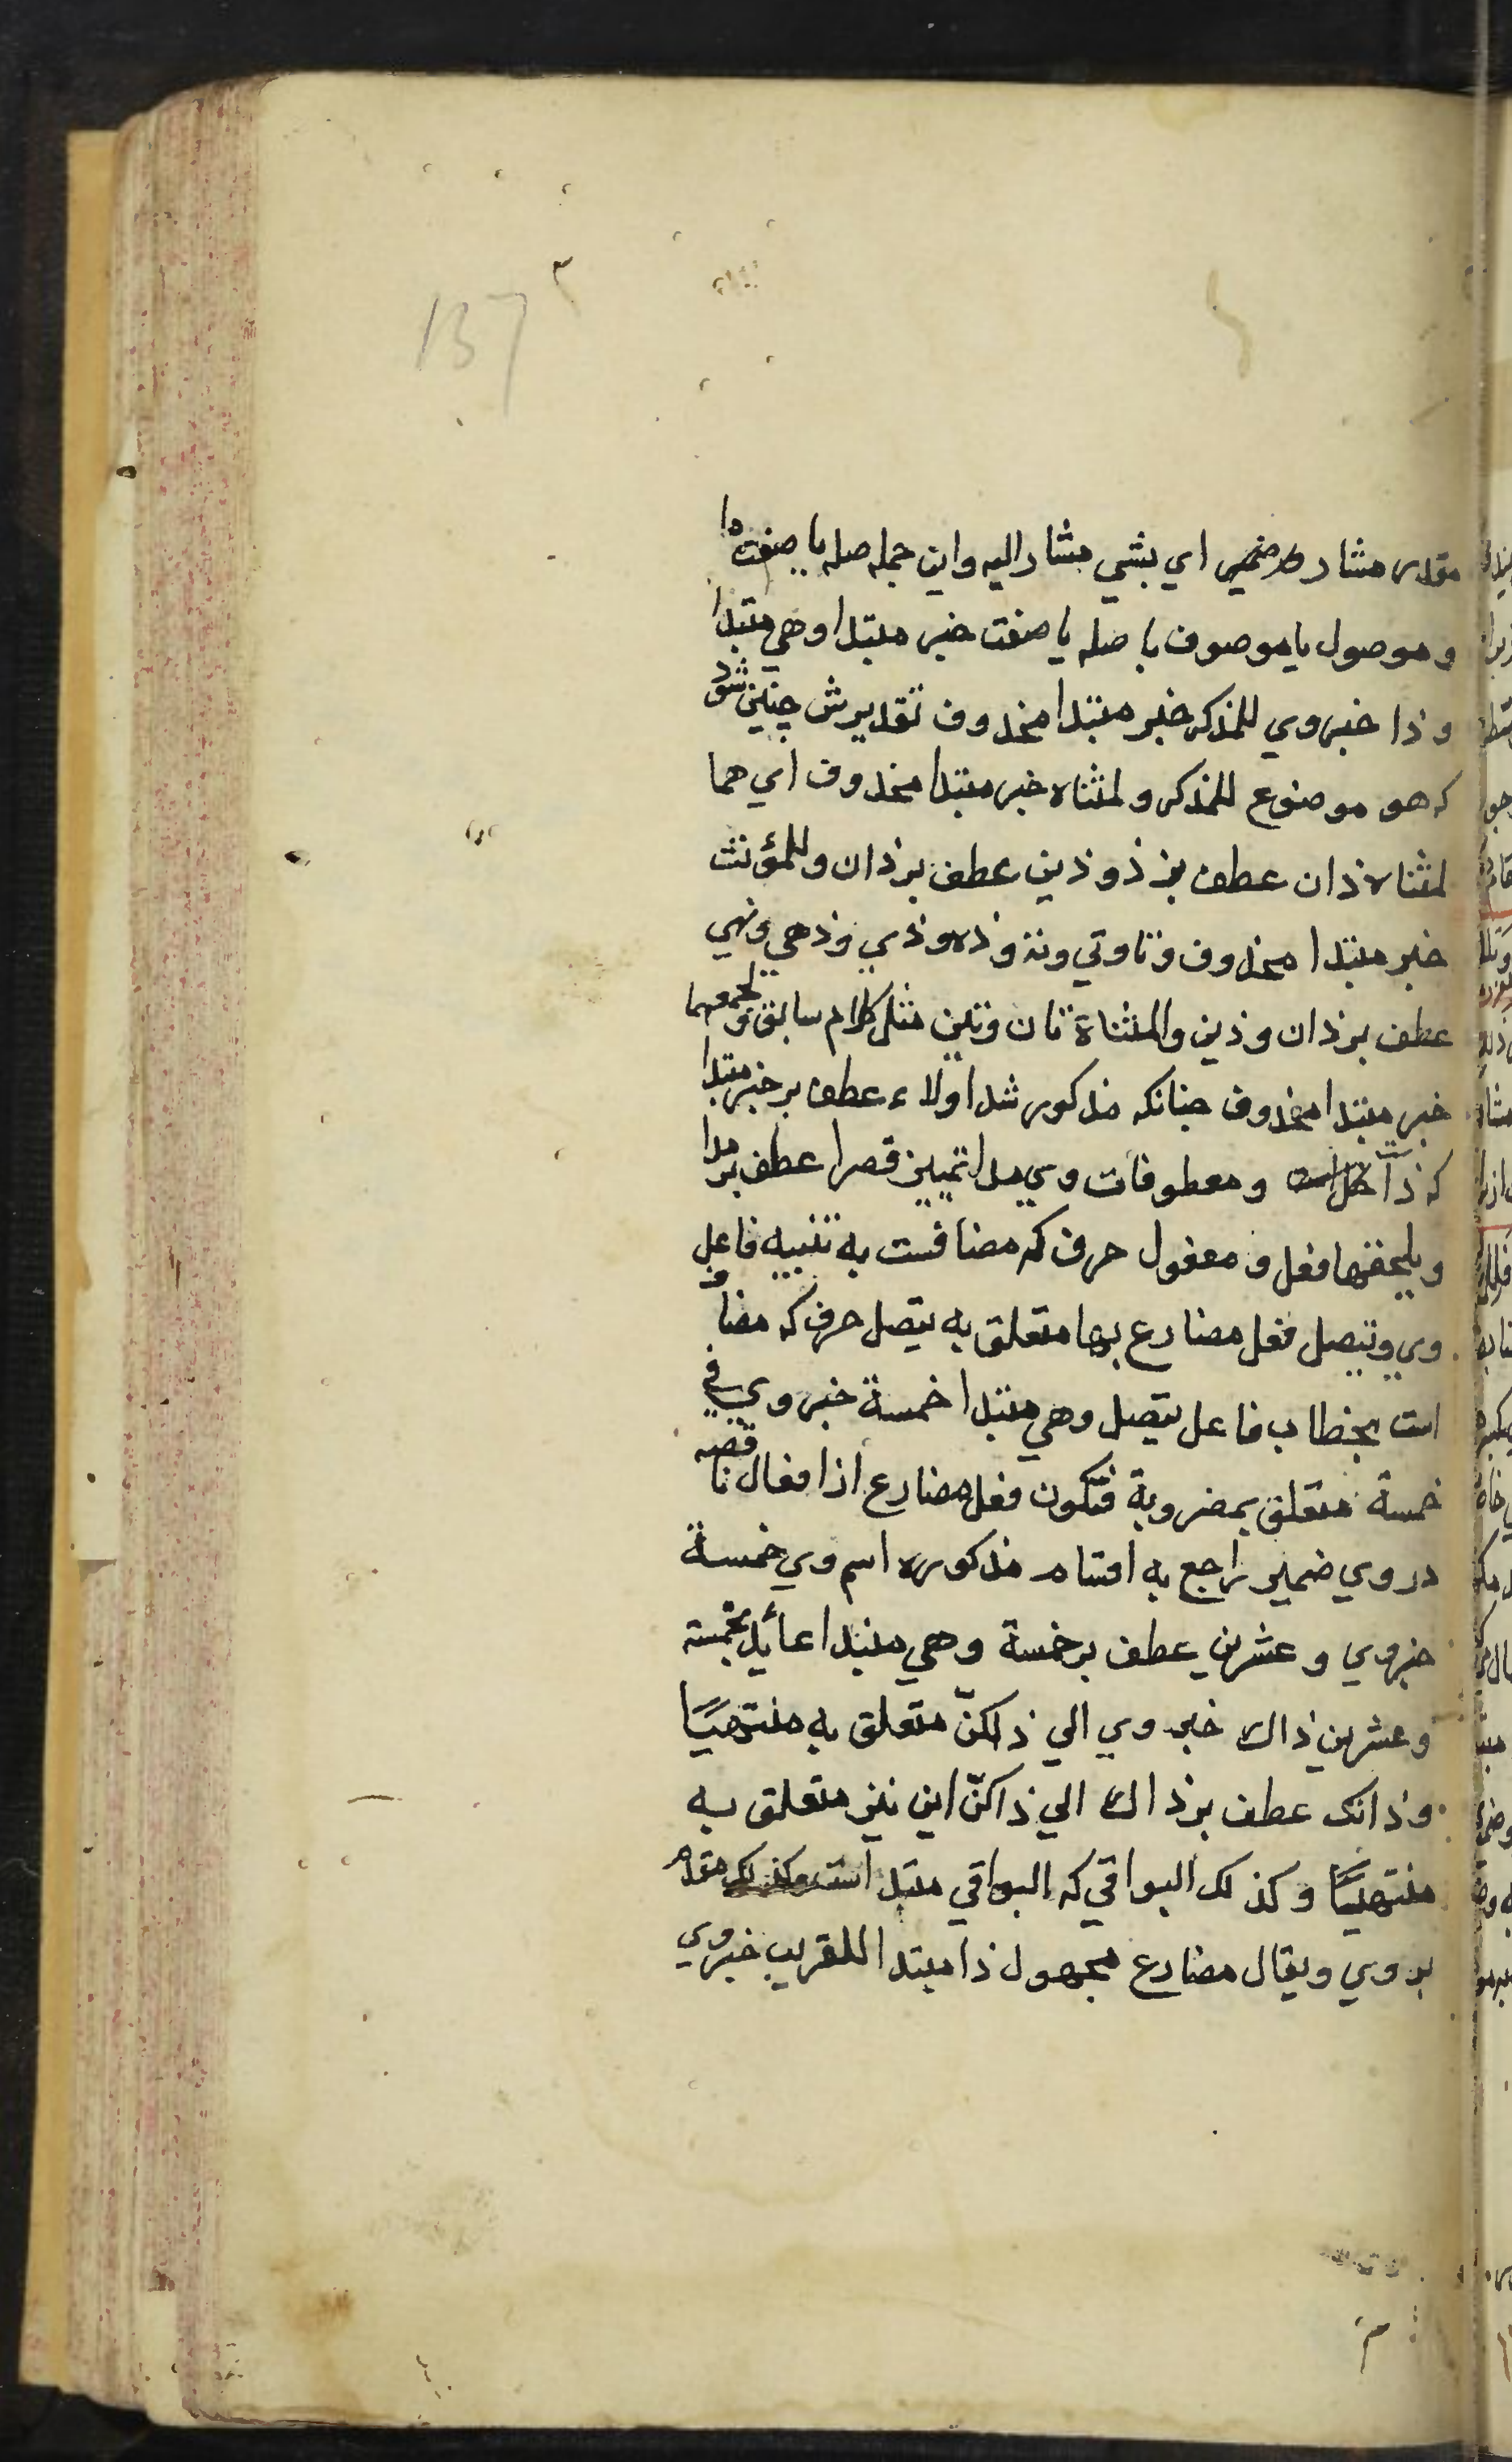 137
مقدر مشار ضمیر اي بشي مشار اليه واين جمله صله يا صفت ما
و موصول يا موصوف با صله يا صفت خبر مبتدا وهي مبتدا
و ذا خبر وي للمذكر خبر مبتدا محذوف تقديرش چنين شود
كه هو موضوع للمذكر و لمثناه خبر مبتدا محذوف اي هما
لمثناه ذان عطف بر ذو ذين عطف بر ذان وللمؤنث
خبر مبتدا محذوف و تا وتي وته و ذه و ذي و ذهي وتهي
عطف بر ذان و ذين و المثناة تان و تين مثل كلام سابق و لجمعهما
خبر مبتدا محذوف چنانكه مذكور شد اولاء عطف بر خبر مبتدا
كه ذا است و معطوفات وي مدا تمييز قصرا عطف بر مدا
ويلحقها فعل و مفعول حرف كه مضافست به تنبيه فاعل
وي ويتصل فعل مضارع بها متعلق به يتصل حرف كه مضاف
است بخطاب فاعل يتصل وهي مبتدا خمسة خبر وي في
خمسة متعلق بمضروبة فتكون فعل مضارع از افعال ناقصه
در وي ضمير راجع به اقسام مذكوره اسم وي خمسة
خبر وي و عشرين عطف بر خمسة وهي مبتدا عائد بخمسة
و عشرين ذاك خبر وي الي ذاكنّ متعلق به منتهيًا
و ذانك عطف بر ذاك الي ذاكنّ اين نيز متعلق به
منتهيًا و كذلك البواقي كه البواقي مبتدا است و كذلك مقدم
بر وي ويقال مضارع مجهول ذا مبتدا للقريب خبر وي